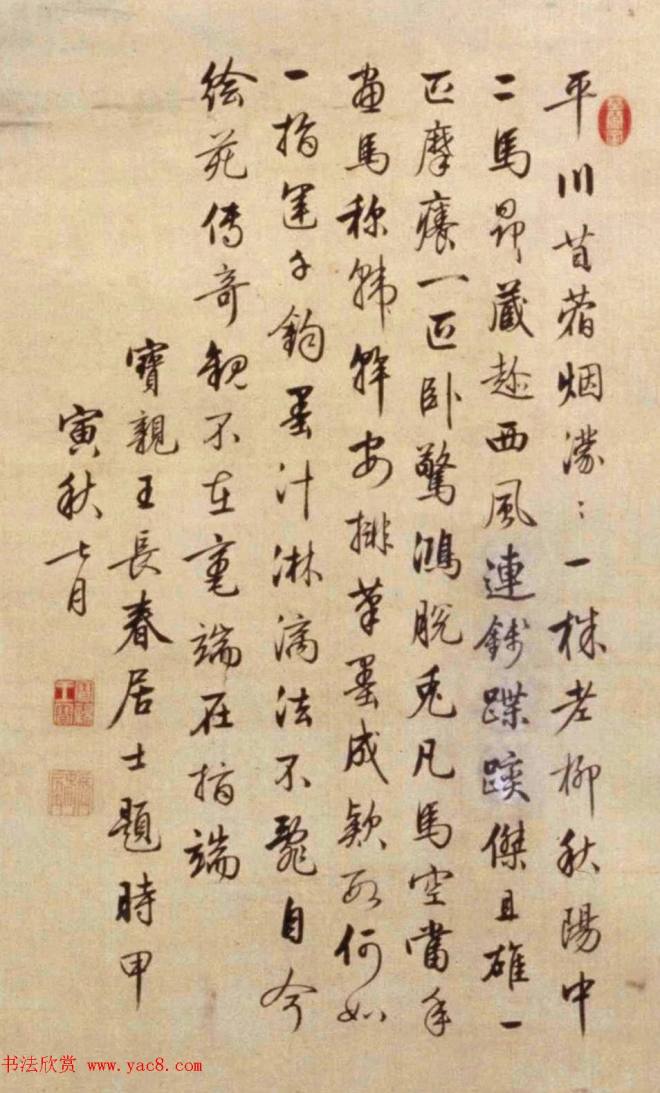 平川苜蓿烟濛：一株老柳秋陽中
二馬昂藏趁西風連錢蹀躞傑且雄一
匹摩癢一匹卧驚鴻脫兎凡馬空當年
畫馬称韩幹安排筆墨成欵段何如
一指運千鈞墨汁淋漓法不亂自今
绘苑傳奇觀不在毫端在指端
寶親王長春居士題時甲
寅秋七月
书法欣赏 www.yac8.com